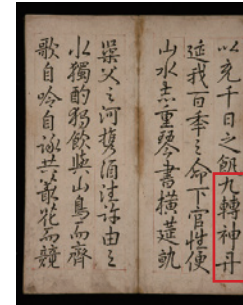 以充千日之飢九轉神丹
延我百秊之命下官性便
山水志重琴書橫莚軌
巢父之河携酒往許由之
水獨酌獨飲與山鳥而齊
歌自吟自詠共藂花而競